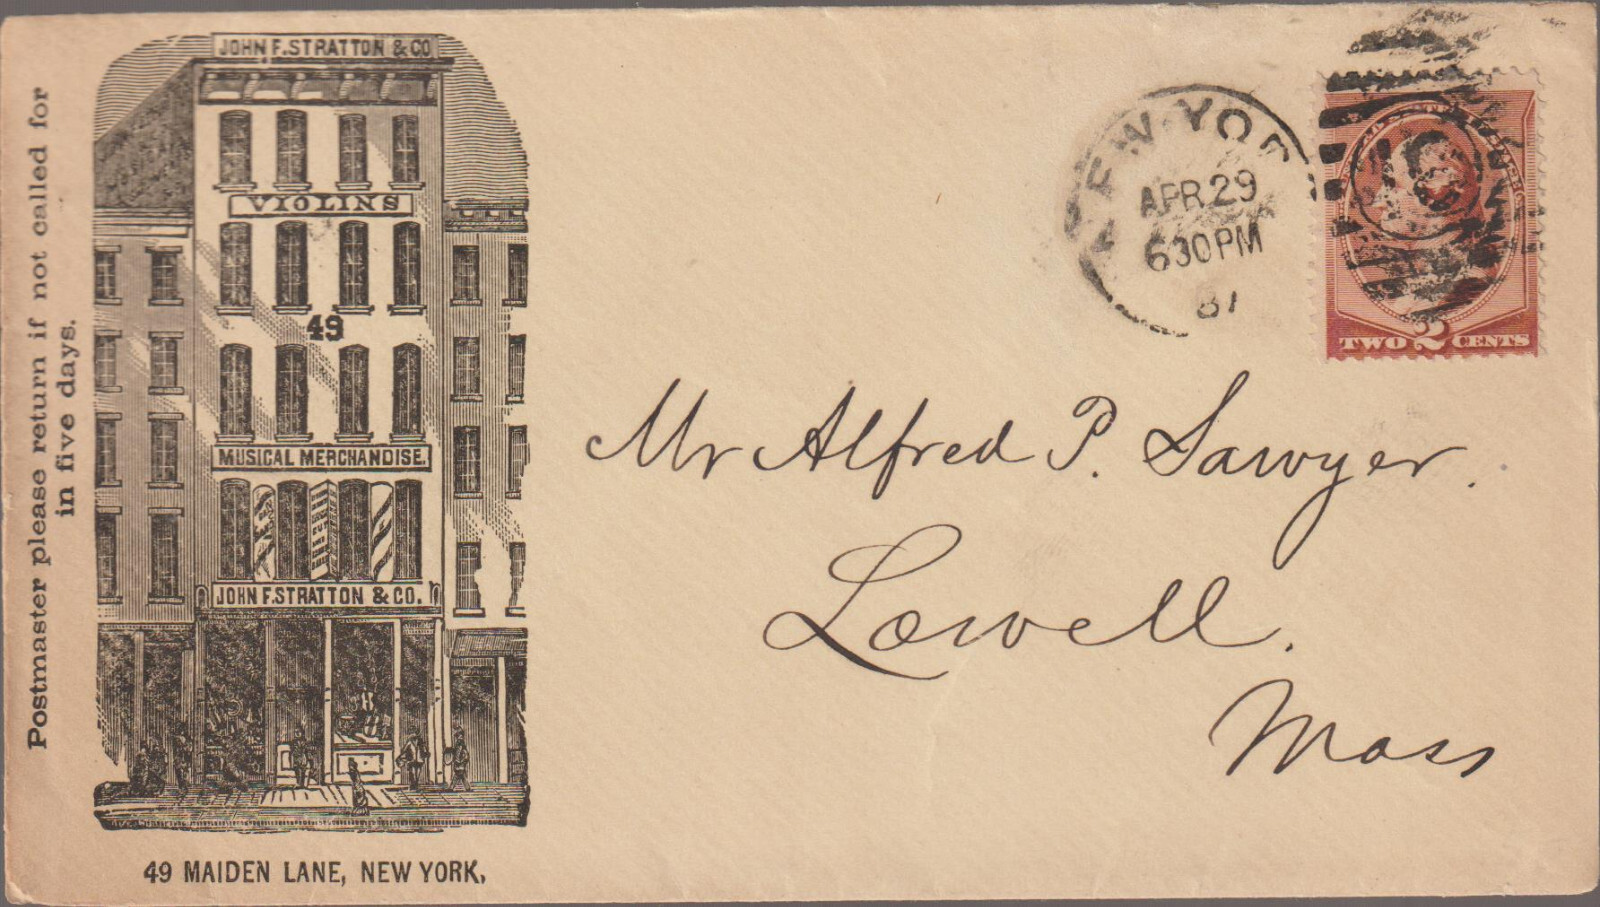 Postmaster please return if not called for
in five days.
JOHN F. STRATTON & CO
VIOLINS
49
MUSICAL MERCHANDISE.
JOHN F. STRATTON & CO.
49 MAIDEN LANE, NEW YORK,
NEW YORK
APR 29
630 PM
87
TWO 2 CENTS
Mr Alfred P. Sawyer.
Lowell.
Mass